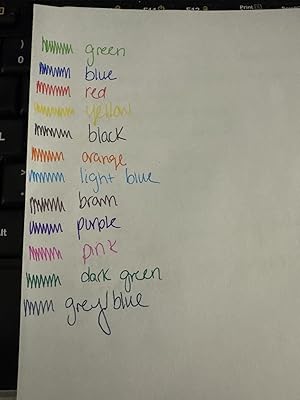 green
blue
red
yellow
black
orange
light blue
brown
purple
pink
dark green
grey/blue